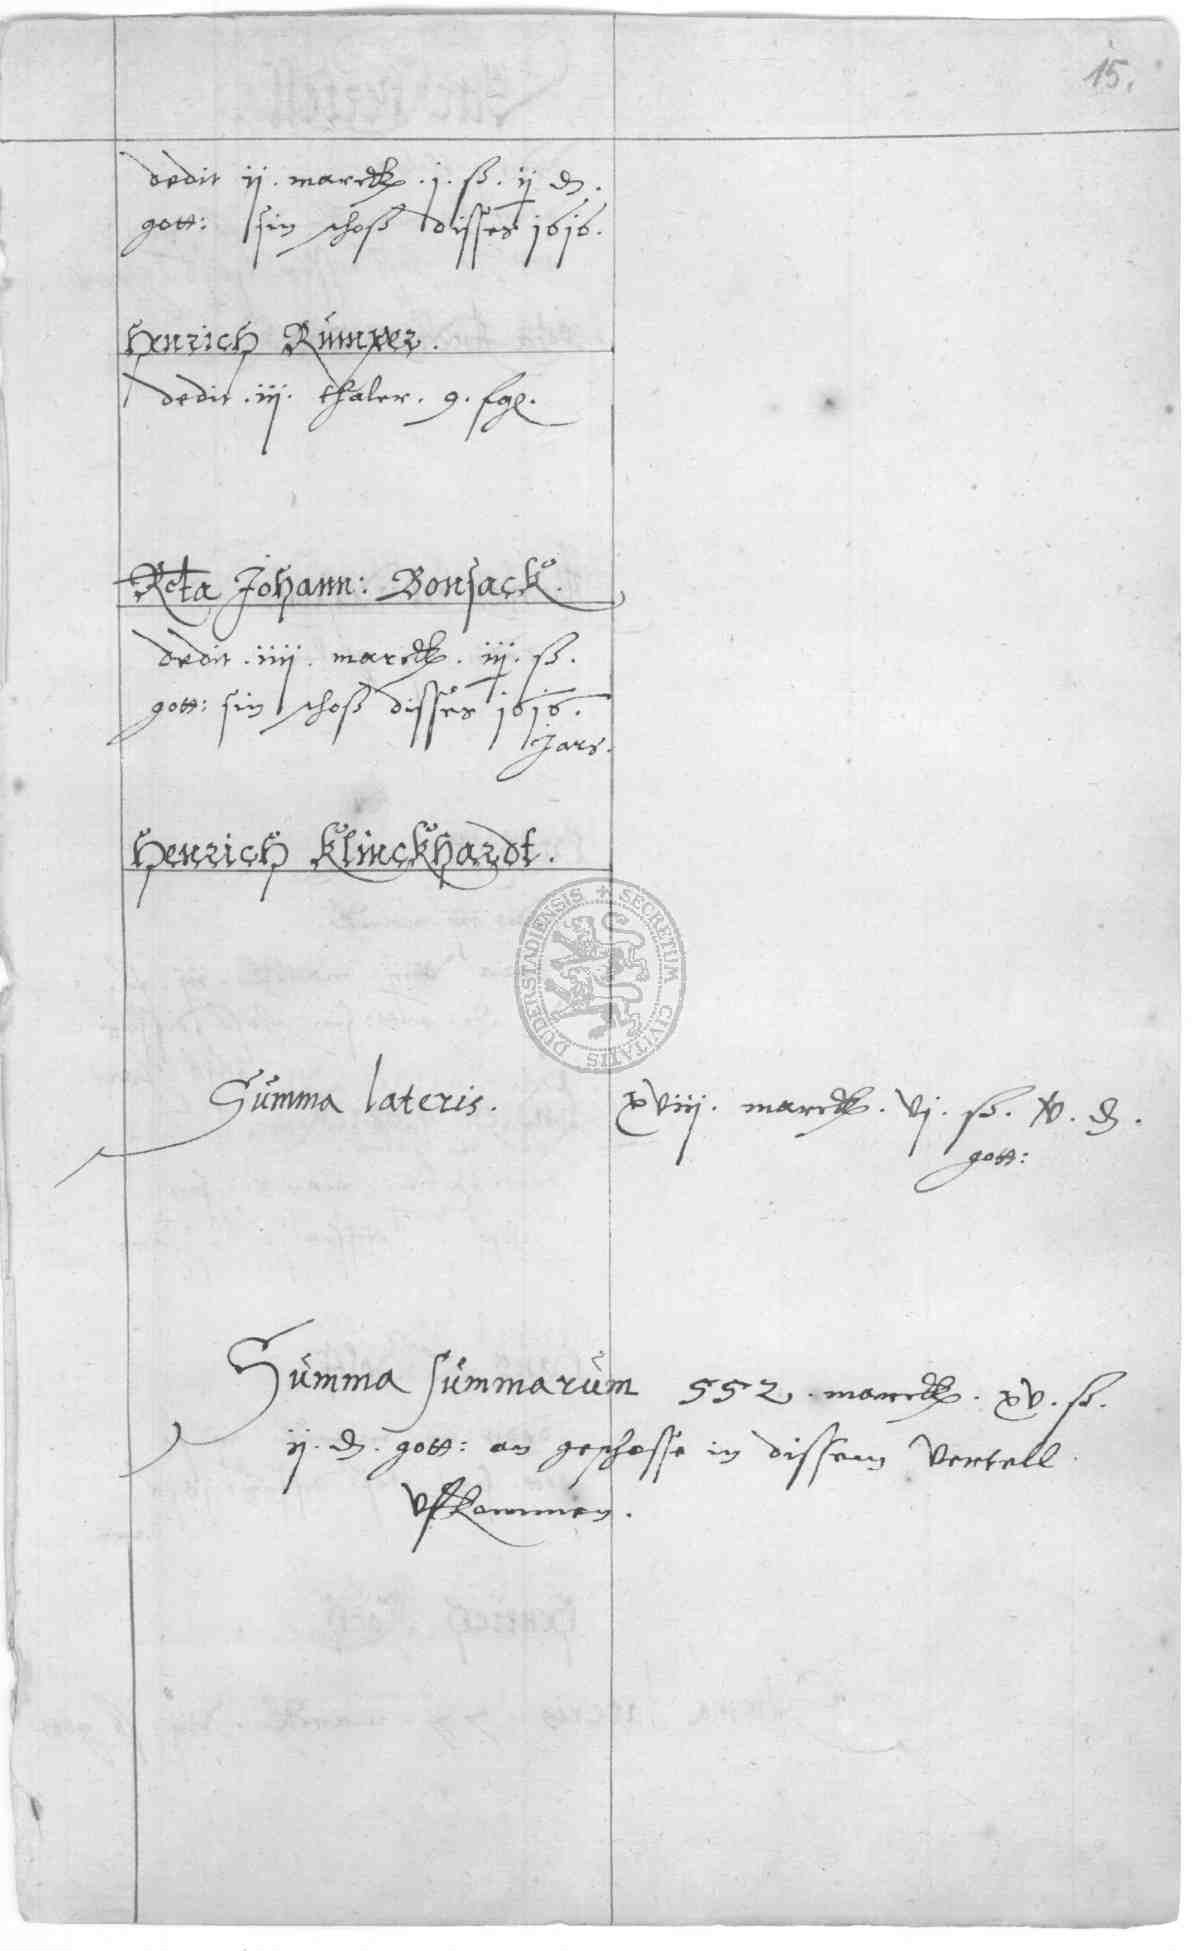 15.
dedit ij. marck. j. ß. ij ₰.
gott: sin schoß disses 1616.
Henrich Rümper.
dedit .iij. thaler. 9. sgl.
Rcta Johann: Bonsack.
dedit .iiij. marck. iij. ß.
gott: sin schoß disses 1616.
Jars.
Henrich Klinckhardt.
DUDERSTADIENSIS SECRETUM CIVITATIS
Summa lateris. xviij. marck. vj. ß. v. ₰.
gott:
Summa summarum 552. marck. xv. ß.
ij. ₰. gott: an geschosse in dissem Vertell
Vffkommen.